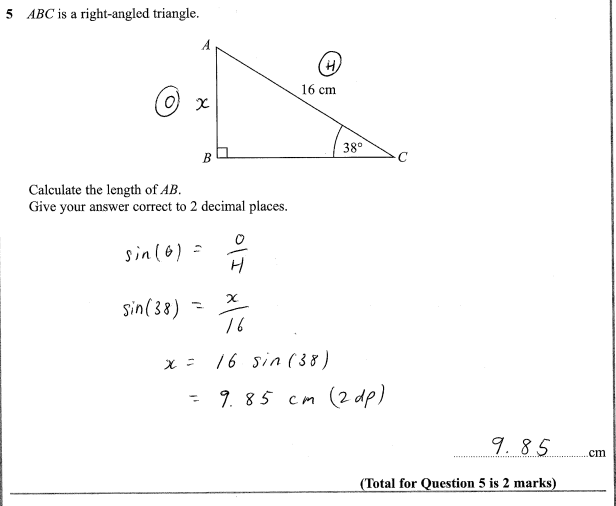 5 ABC is a right-angled triangle.
A
H
16 cm
O x
38°
B
C
Calculate the length of AB.
Give your answer correct to 2 decimal places.
sin(θ) = O/H
sin(38) = x/16
x = 16 sin(38)
= 9.85 cm (2dp)
9.85 cm
(Total for Question 5 is 2 marks)